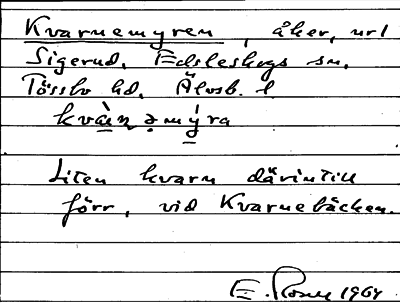 Kvarnemyren, åker, url
Sigerud, Edsleskogs sn,
Tössbo hd. Älvsb. l
kvàn̠ə mý̠ra
Liten kvarn därintill
förr, vid Kvarnebäcken.
E. 1964